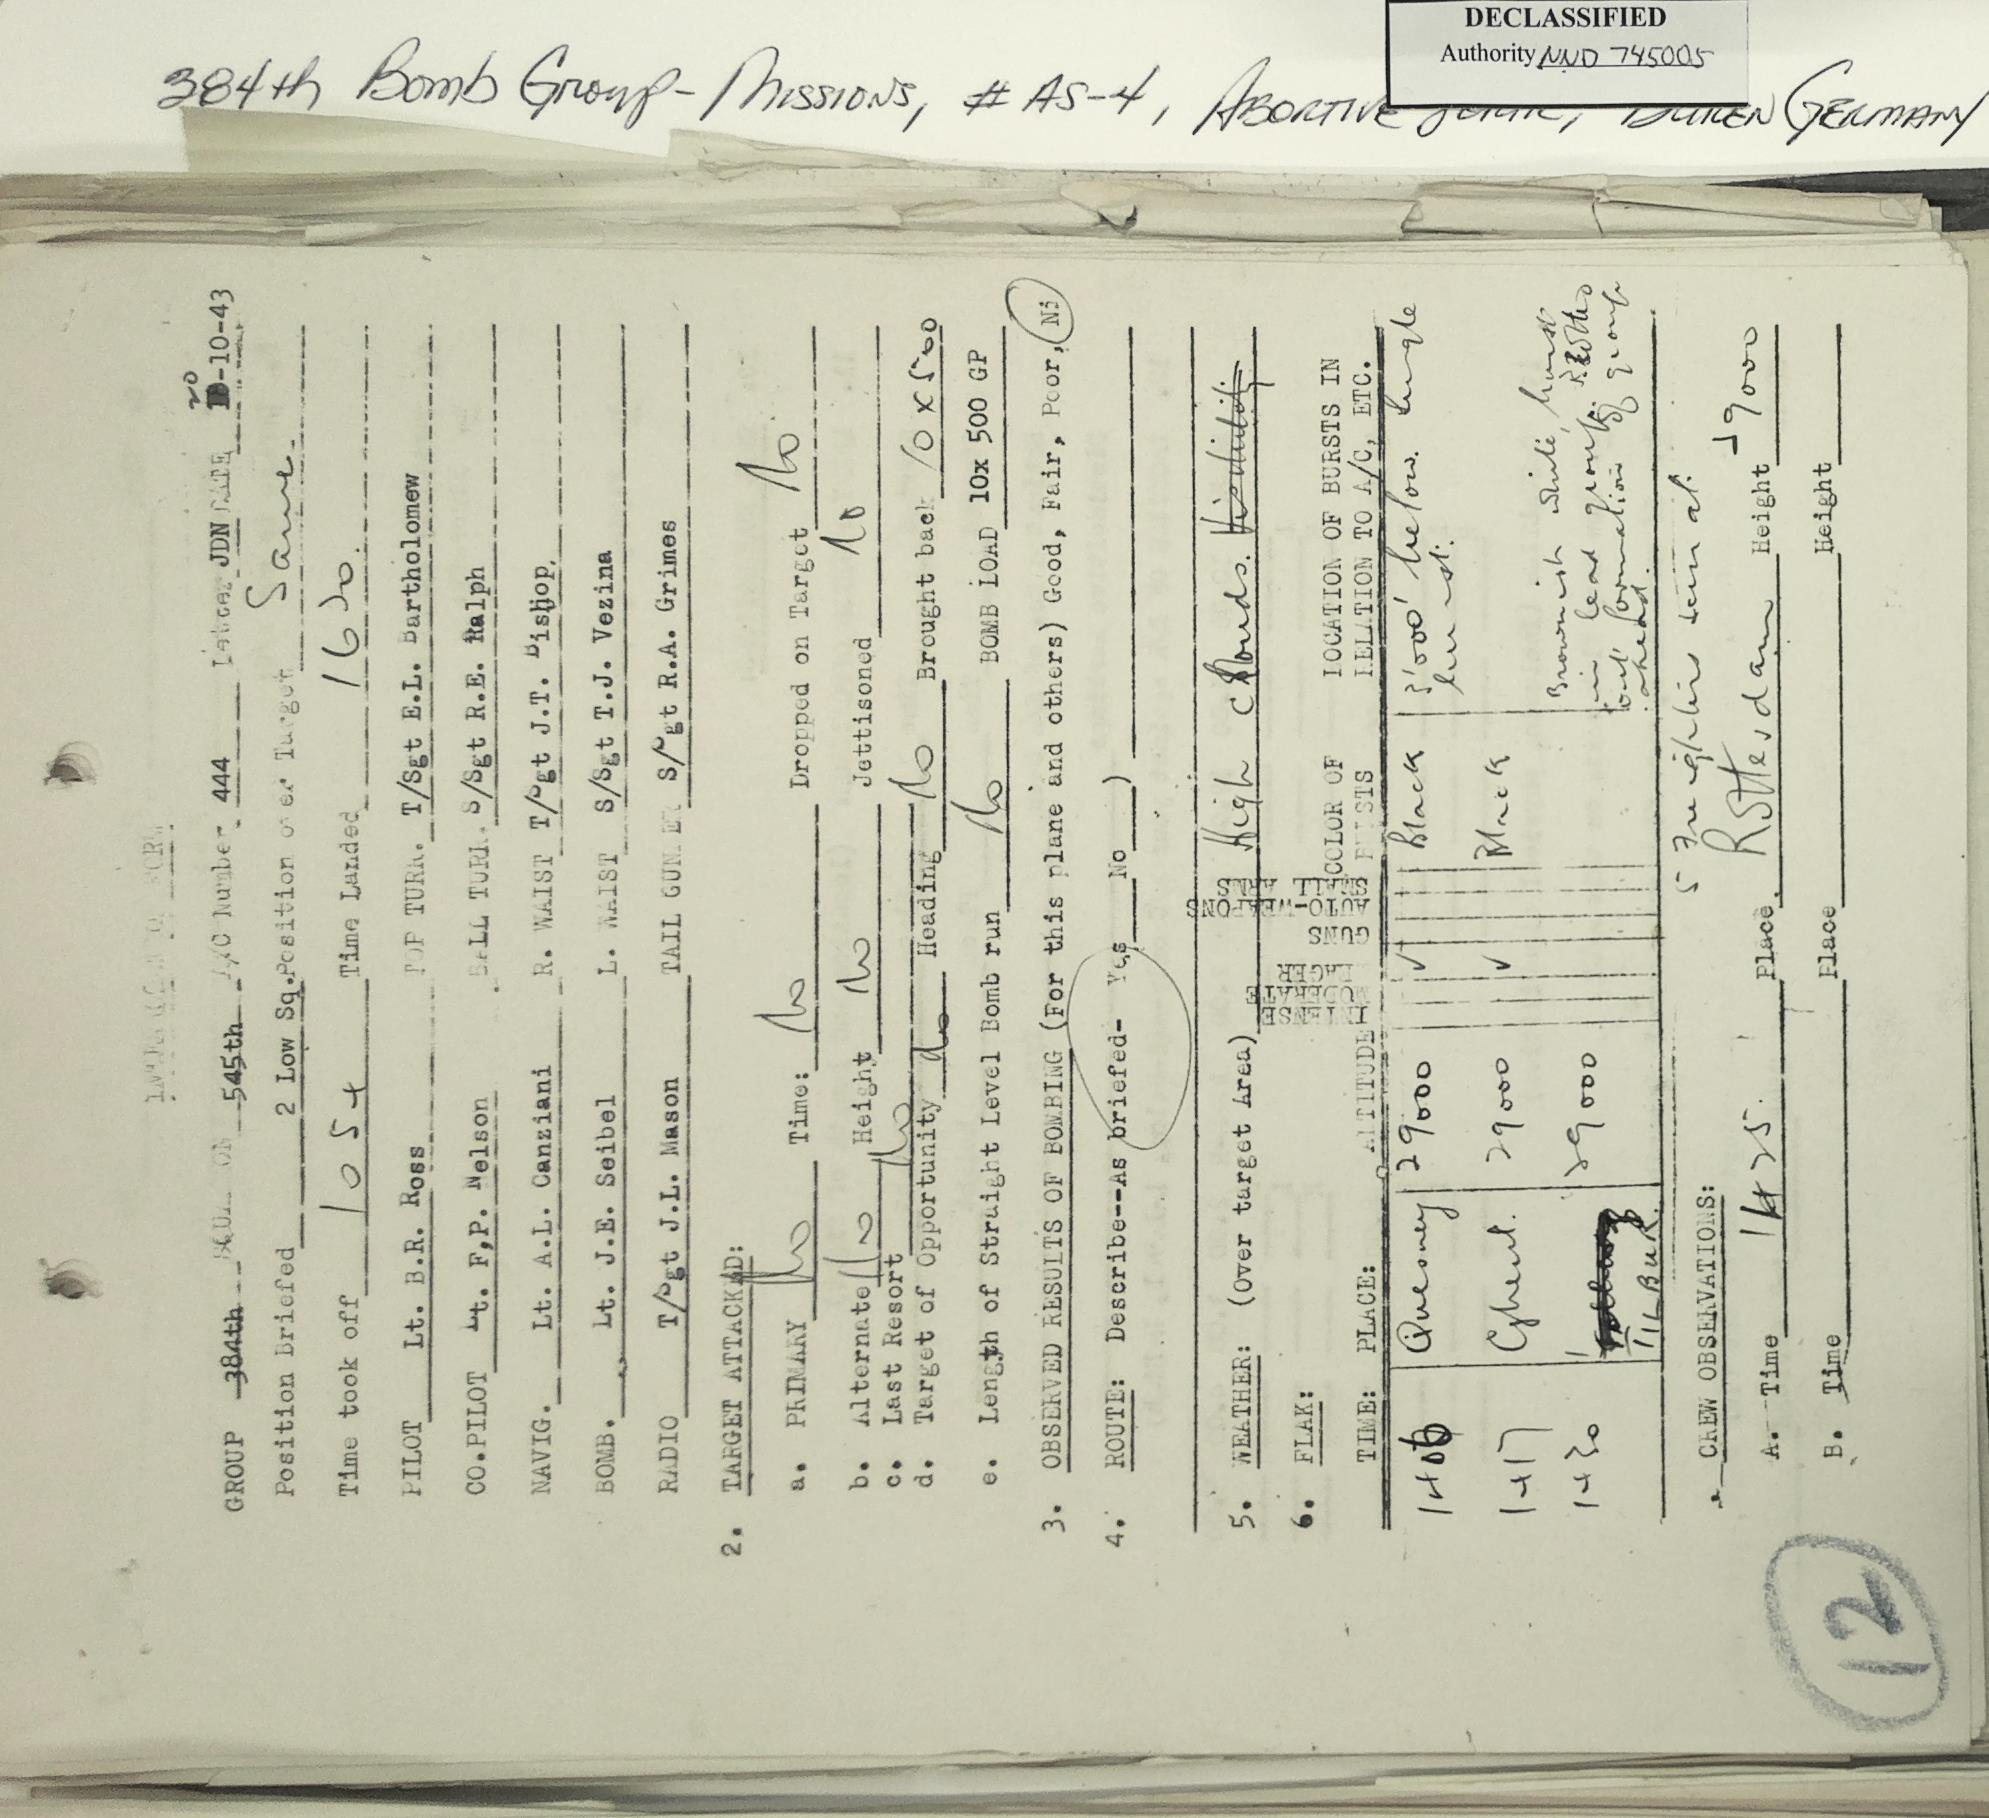 DECLASSIFIED
Authority NND 745005
384th Bomb Group - Missions, # AS-4, Abortive Sortie, Duren Germany
INTERROGATION FORM
GROUP 384th SQUADRON 545th A/C Number 444 Letter JDN DATE 20-10-43
Position Briefed 2 Low Sq. Position over Target Same.
Time took off 1054 Time Landed 1620.
PILOT Lt. B.R. Ross TOP TURR. T/Sgt E.L. Bartholomew
CO.PILOT Lt. F,P. Nelson BALL TURR. S/Sgt R.E. Ralph
NAVIG. Lt. A.L. Canziani R. WAIST T/Sgt J.T. Bishop.
BOMB. Lt. J.E. Seibel L. WAIST S/Sgt T.J. Vezina
RADIO T/Sgt J.L. Mason TAIL GUNNER S/Sgt R.A. Grimes
2. TARGET ATTACKED:
a. PRIMARY No Time: No Dropped on Target No
b. Alternate No Height No Jettisoned No
c. Last Resort No
d. Target of Opportunity No Heading No Brought back 10 x 500
e. Length of Straight Level Bomb run No BOMB LOAD 10x 500 GP
3. OBSERVED RESULTS OF BOMBING (For this plane and others) Good, Fair, Poor, Ni
4. ROUTE: Describe--As briefed- Yes No )
5. WEATHER: (Over target Area) High clouds. Visibility
6. FLAK:
TIME: PLACE: ALTITUDE INTENSE MODERATE EAGER GUNS AUTO-WEAPONS SMALL ARMS COLOR OF BURSTS LOCATION OF BURSTS IN RELATION TO A/C, ETC.
1406 Quesney 29000 ✓ Black 3'000' below. single burst.
1417 Ghent. 29000 ✓ Black
1430 TILBUR. 29000 Brownish white, burst in lead group of formation of group ahead.
CREW OBSERVATIONS: 5 Freighters seen at
A. Time 1425. Place Rotterdam Height 29000
B. Time Place Height
12